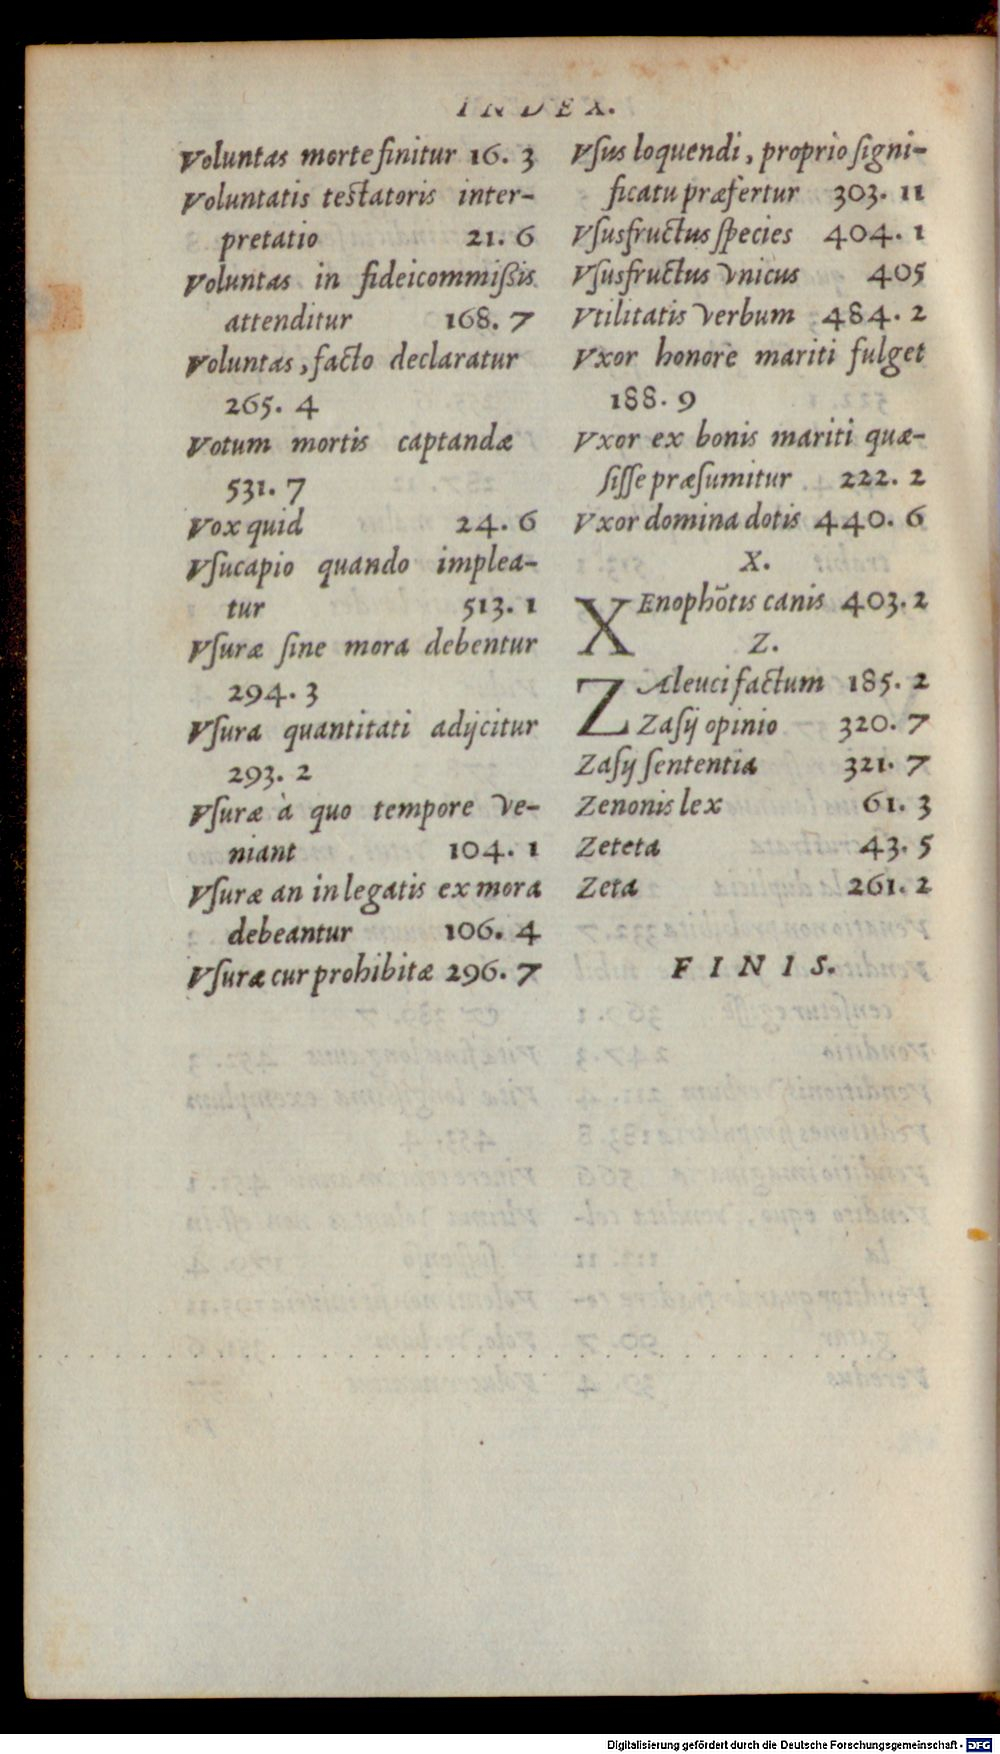 INDEX.
Voluntas morte finitur 16. 3
Voluntatis testatoris inter-
pretatio 21. 6
Voluntas in fideicommißis
attenditur 168. 7
Voluntas, facto declaratur
265. 4
Votum mortis captandæ
531. 7
Vox quid 24. 6
Vſucapio quando implea-
tur 513. 1
Vſuræ ſine mora debentur
294. 3
Vſura quantitati adijcitur
293. 2
Vſuræ à quo tempore ve-
niant 104. 1
Vſuræ an in legatis ex mora
debeantur 106. 4
Vſuræ cur prohibitæ 296. 7
Vſus loquendi, proprio ſigni-
ficatu præfertur 303. 11
Vſusfructus ſpecies 404. 1
Vſusfructus vnicus 405
Vtilitatis verbum 484. 2
Vxor honore mariti fulget
188. 9
Vxor ex bonis mariti quæ-
ſiſſe præſumitur 222. 2
Vxor domina dotis 440. 6
X.
XEnophōtis canis 403. 2
Z.
ZAleuci factum 185. 2
Zaſij opinio 320. 7
Zaſij ſententia 321. 7
Zenonis lex 61. 3
Zeteta 43. 5
Zeta 261. 2
FINIS.
Digitalisierung gefördert durch die Deutsche Forschungsgemeinschaft - DFG